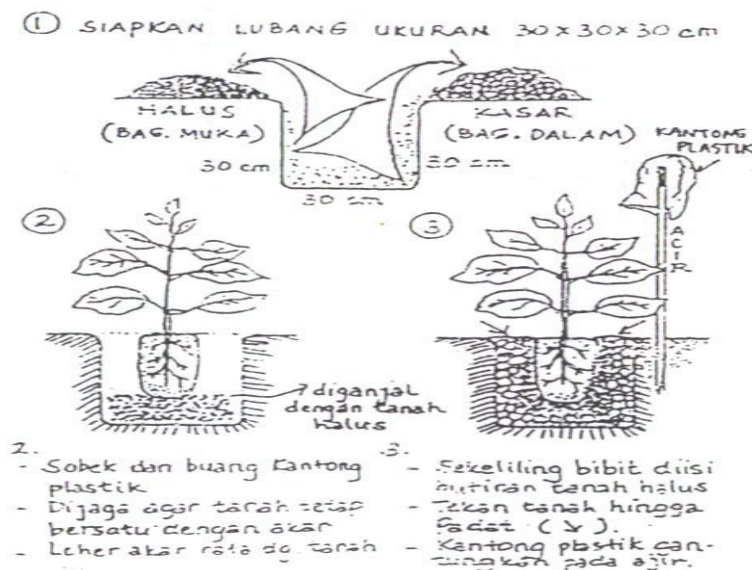 ① SIAPKAN LUBANG UKURAN 30 x 30 x 30 cm
HALUS
(BAG. MUKA)
KASAR
(BAG. DALAM)
30 cm
30 cm
30 cm
KANTONG
PLASTIK
②
③
ACIR
diganjal
dengan tanah
halus
2.
- Sobek dan buang kantong
plastik
- Dijaga agar tanah tetap
bersatu dengan akar
- Leher akar rata dg tanah
3.
- Sekeliling bibit diisi
butiran tanah halus
- Tekan tanah hingga
padat (↘).
- Kantong plastik can-
tungkan pada ajir.